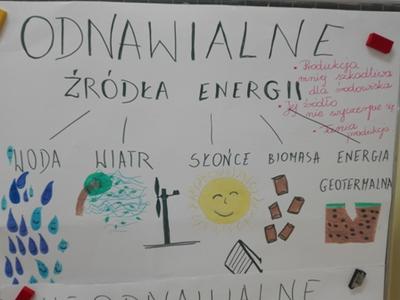 ODNAWIALNE
ŹRÓDŁA ENERGII
• Produkcja
mniej szkodliwa
dla środowiska
• Jej źródło
nie wyczerpie się
• Tania
produkcja
WODA WIATR SŁOŃCE BIOMASA ENERGIA
GEOTERMALNA
NIEODNAWIALNE